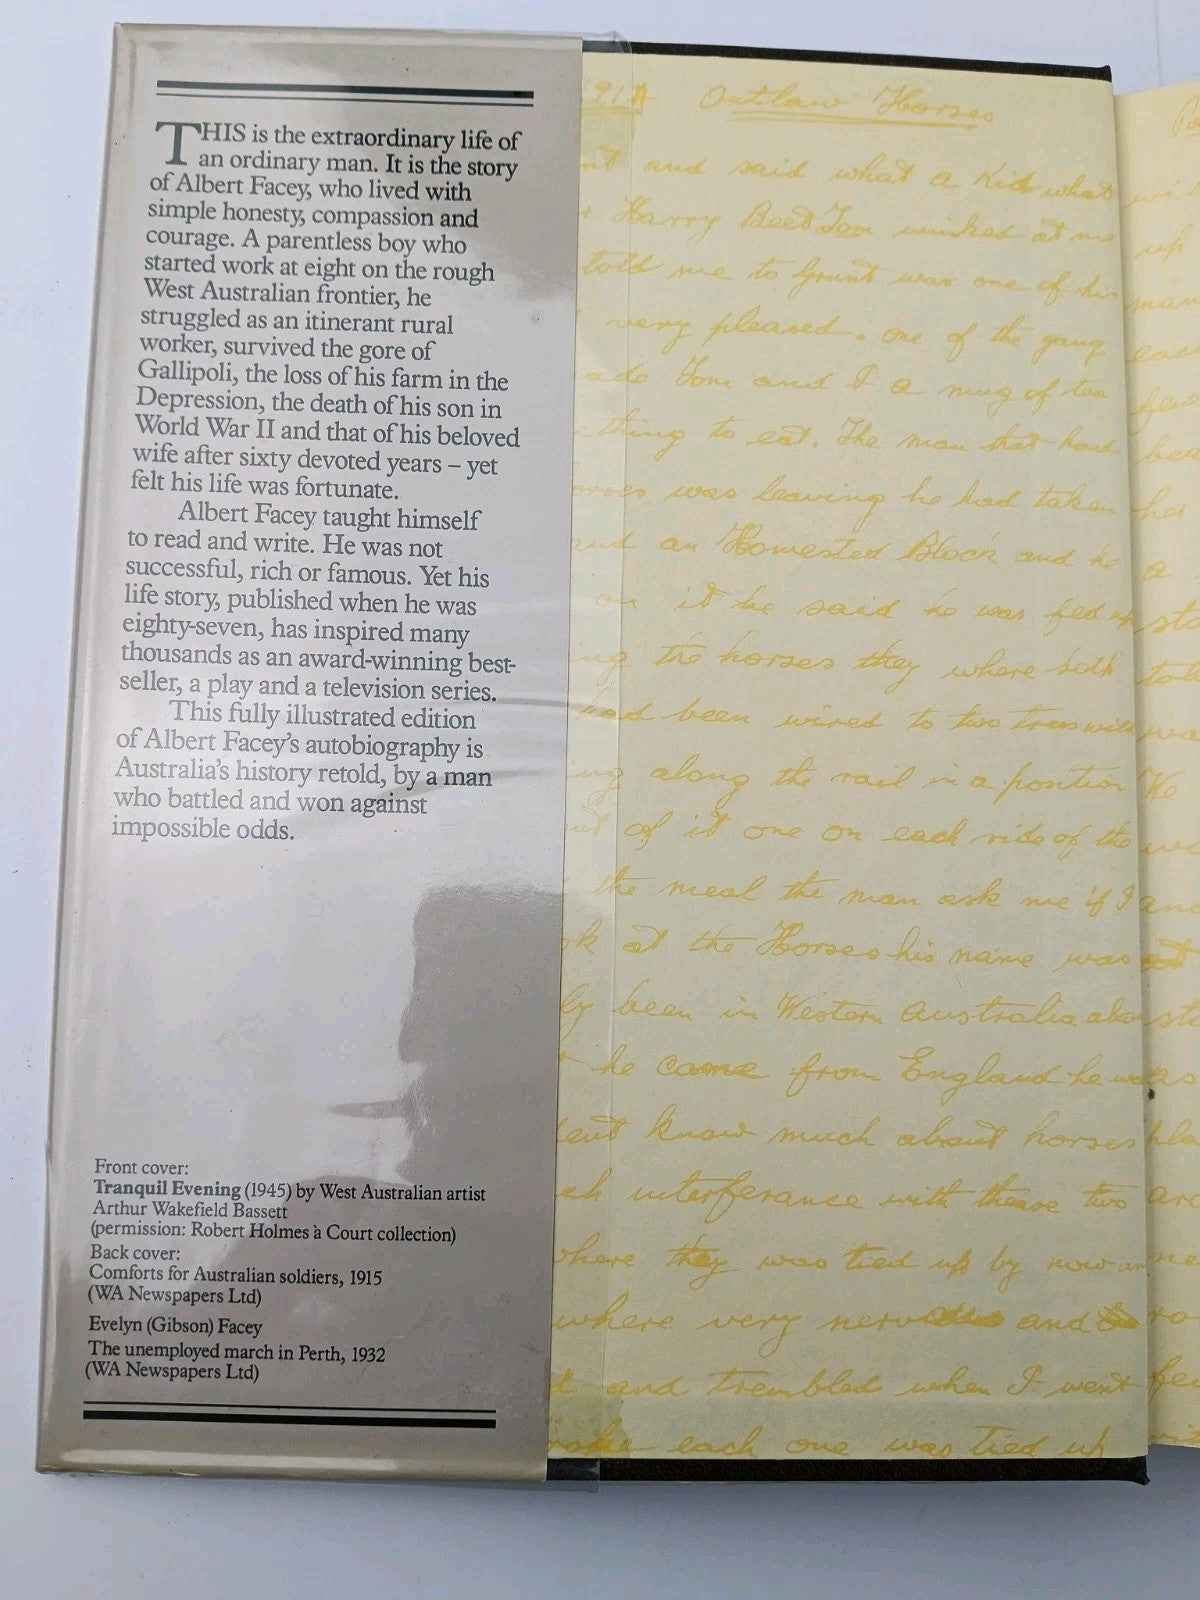 THIS is the extraordinary life of
an ordinary man. It is the story
of Albert Facey, who lived with
simple honesty, compassion and
courage. A parentless boy who
started work at eight on the rough
West Australian frontier, he
struggled as an itinerant rural
worker, survived the gore of
Gallipoli, the loss of his farm in the
Depression, the death of his son in
World War II and that of his beloved
wife after sixty devoted years – yet
felt his life was fortunate.
Albert Facey taught himself
to read and write. He was not
successful, rich or famous. Yet his
life story, published when he was
eighty-seven, has inspired many
thousands as an award-winning best-
seller, a play and a television series.
This fully illustrated edition
of Albert Facey's autobiography is
Australia's history retold, by a man
who battled and won against
impossible odds.
Front cover:
Tranquil Evening (1945) by West Australian artist
Arthur Wakefield Bassett
(permission: Robert Holmes à Court collection)
Back cover:
Comforts for Australian soldiers, 1915
(WA Newspapers Ltd)
Evelyn (Gibson) Facey
The unemployed march in Perth, 1932
(WA Newspapers Ltd)
Outlaw Horses
and said what a Kid what
Harry Beet Tom winked at me
told me to Grunt was one of his
very pleased. one of the gang
Tom and I a mug of tea
to eat. The man that had
was leaving he had taken
an Homested Block and he
on it he said he was fed up
the horses they where both
had been wired to two trees with
along the rail in a position
of it one on each side of the
the meal the man ask me if I
at the Horses his name was
been in Western Australia
he came from England he was
know much about horses
interferance with these two
where they was tied up by now
where very nervous and
and trembled when I went
each one was tied up
up
We
a